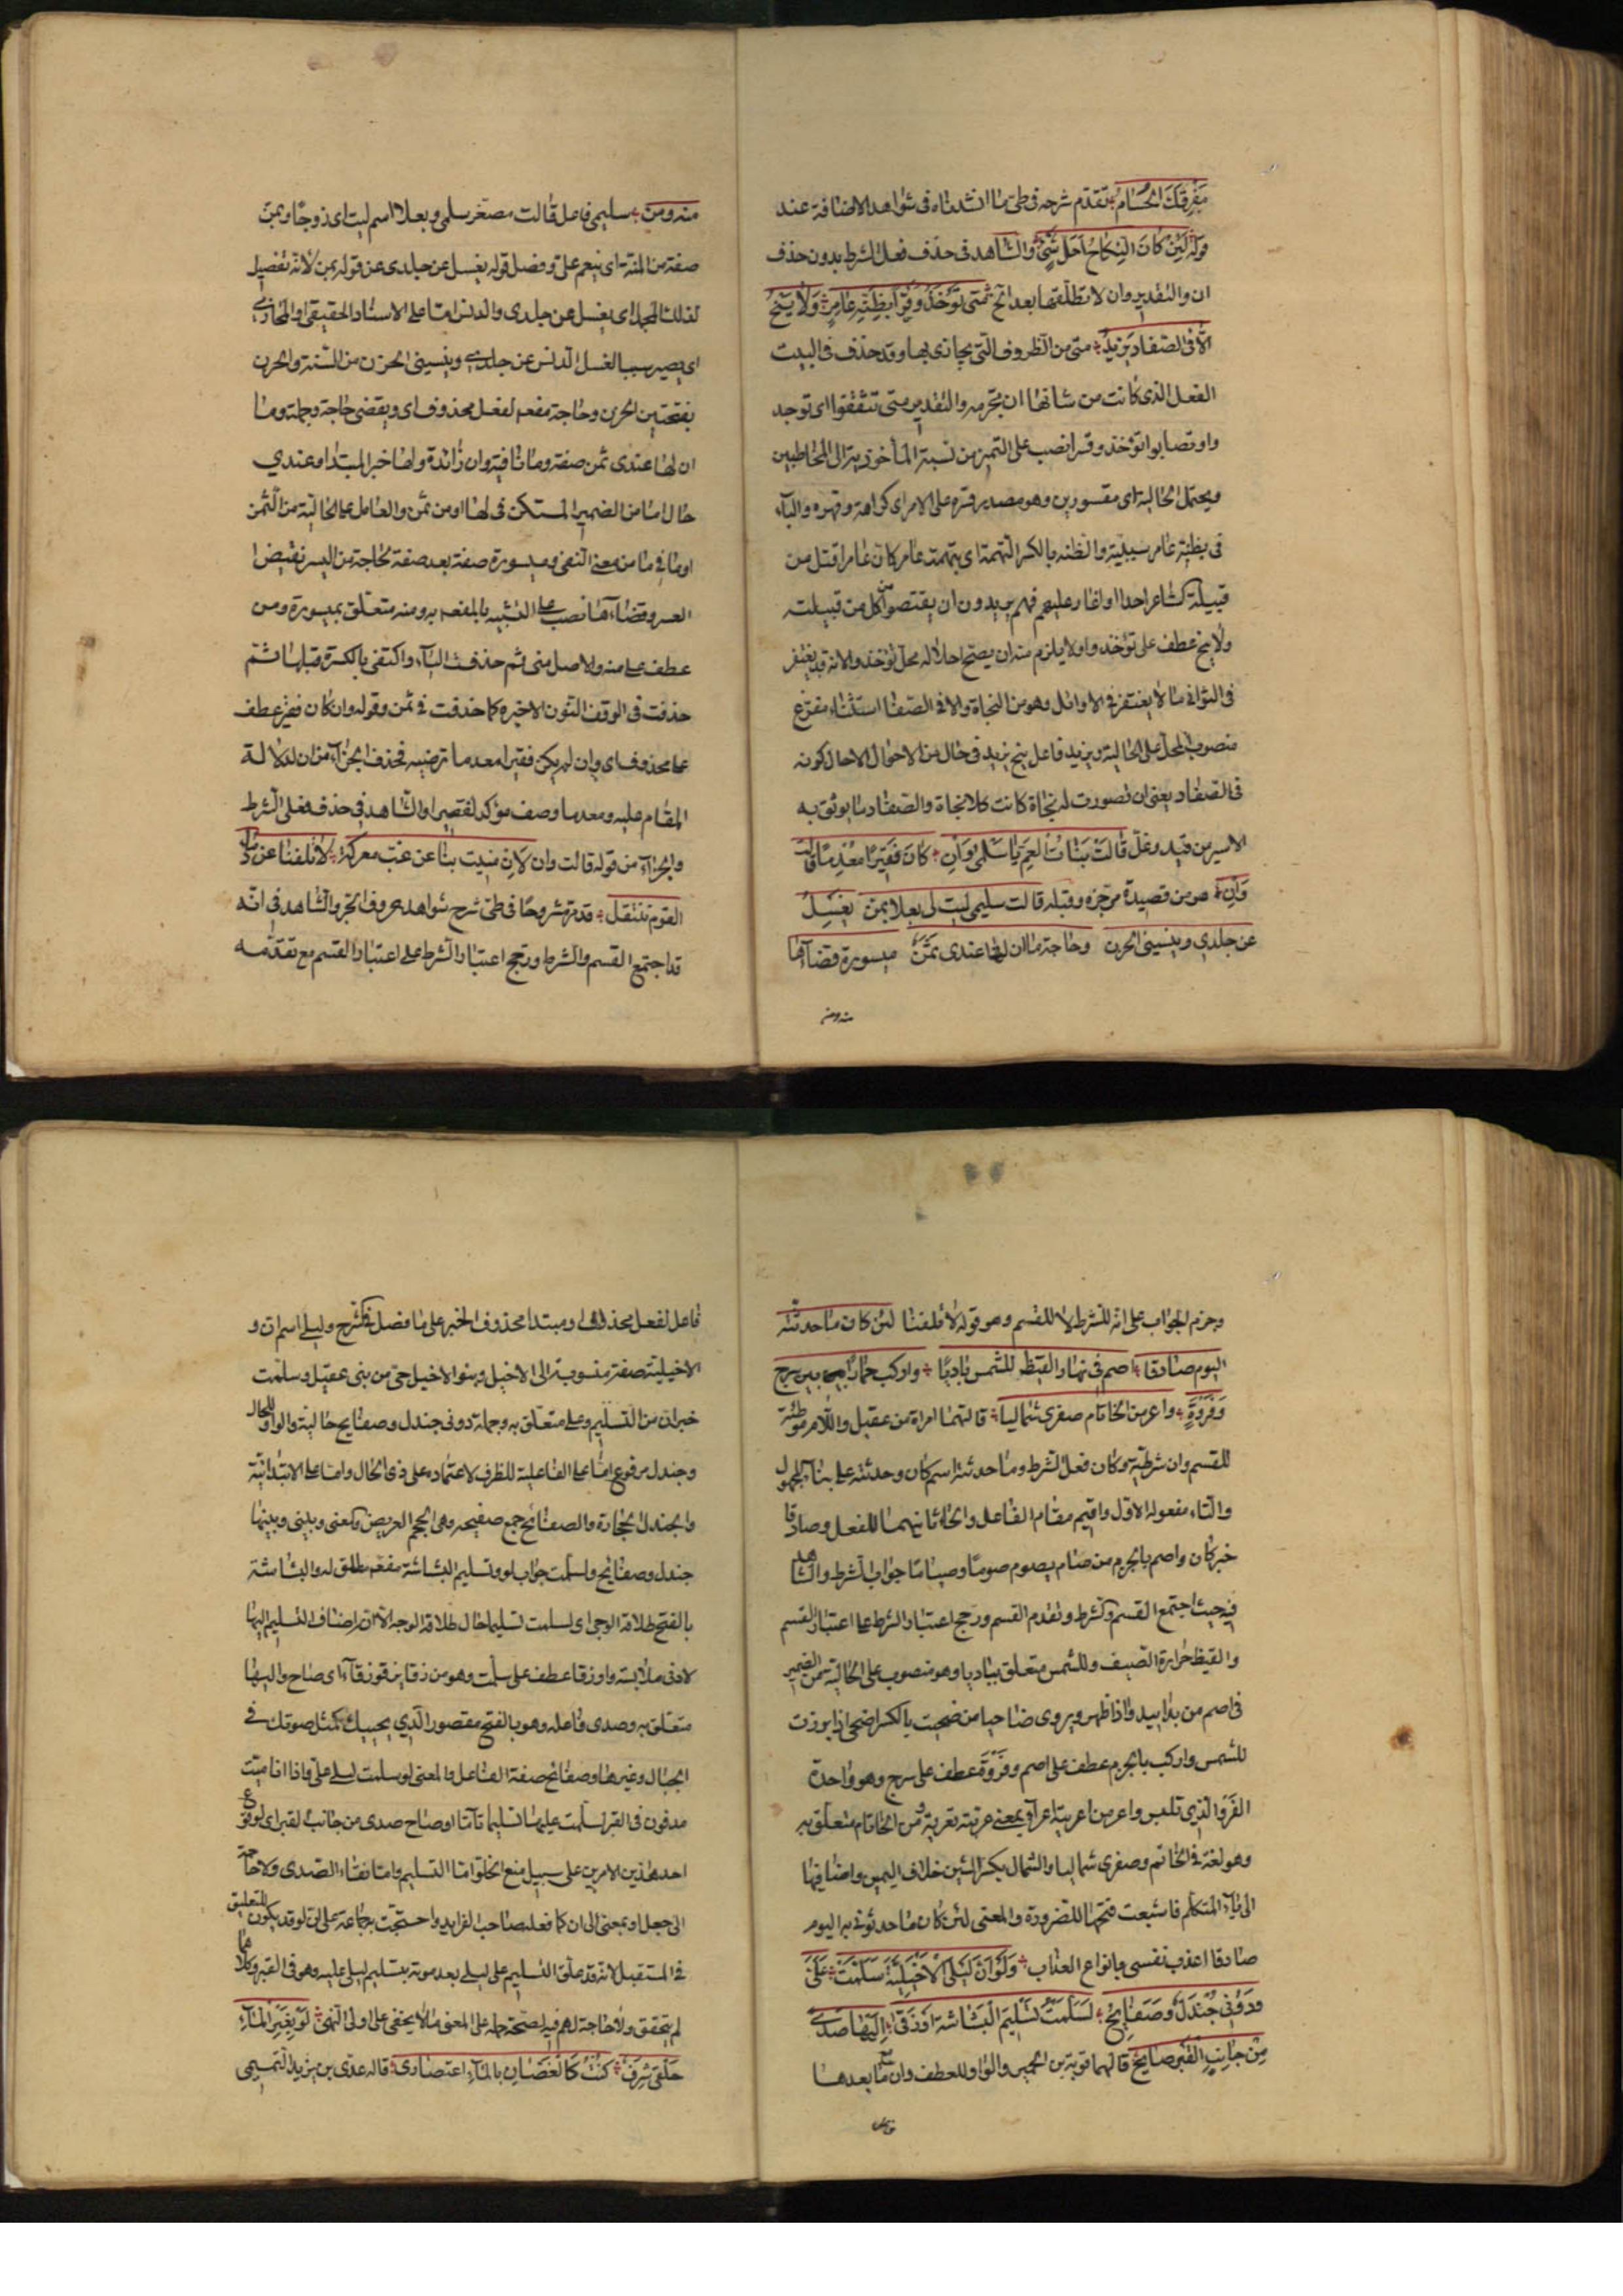 مَفْرِقَكَ الحُسَامُ تقدم شرحه في طي ما انشدناه في شواهد الاضافة عند
قوله لَئِنْ كَانَ النِكَاحُ اَحَلّ شَيْءٍ والشاهد في حذف فعل الشرط بدون حذف
ان والتقدير وان لا تطلقها بعد الخ مَتى تُؤْخَذُوا قَسْرًا بِظِنَّةِ عَامِرٍ وَلَا يَنْجُ
الّا في الصّفادِ يَزِيدُ متى من الظروف التي يجازى بها وقد حذف في البيت
الفعل الذي كانت من شانها ان تجزمه والتقدير متى تثقفوا اي توجد
وا وتصابوا تؤخذوا وقسرا نصب على التميز من نسبة المأخوذية الى المخاطبين
ويحتمل الحالية اي مقسورين وهو مصدر قسره على الامر اي كراهة وقهره والباء
في بظنة عامر سببية والظنة بالكسر التهمة اي بتهمة عامر كان عامرا قتل من
قبيلة كشاعر احدا او اغار عليهم فهم يريدون ان يقتصوا من كل من قبيلته
ولا ينج عطف على تؤخذوا ولا يلزم منه ان يصح احلاله محل تؤخذوا لانه قد يغتفر
في الثواني ما لا يغتفر في الاوائل وهو من النجاة والا في الصفاد استثناء مفرغ
منصوب المحل على الحالية ويزيد فاعل ينج يزيد في حال من الاحوال الا حال كونه
في الصفاد يعني ان تصورت له نجاة كانت كلا نجاة والصفاد ما يوثق به
الاسير من قيد وغل قَالَتْ بَنَاتُ العَمِّ يَا سَلْمى وَاِنْ كَانَ فَقِيرًا مُعْدِمًا قَالَتْ
وَاِنْ هو من قصيدة مرجزة وقبله قالت سليمى ليت لي بعلا يمن يغسل
عن جلدي وينسيني الحزن وحاجة ما ان لها عندي ثمن ميسورة قضاؤها
منه ومن
منه ومن سليمى فاعل قالت مصغر سلمى وبعلا اسم ليت اي زوجا ويمن
صفة من المنة اي ينعم علي وفصل قوله يغسل عن جلدي عن قوله يمن لانه تفصيل
لذلك المجمل اي يغسل عن جلدي والدنس اما على الاسناد الحقيقي او المجازي
اي يصير سببا لغسل الدنس عن جلدي وينسيني الحزن من النسية والحزن
بفتحتين الحزن وحاجة مفعول لفعل محذوف اي ويقضي حاجة وجملة وما
ان لها عندي ثمن صفة وما نافية وان زائدة ولها خبر المبتدا وعندي
حال اما من الضمير المستكن في لها او من ثمن والعامل على الحالية من الثمن
او ما في ما من معنى النفي وميسورة صفة بعد صفة لحاجة من اليسر نقيض
العسر وقضاءها نصب على التشبيه بالمفعول به ومنه متعلق بميسورة ومن
عطف على منه والاصل مني ثم حذفت الياء واكتفي بالكسرة قبلها ثم
حذفت في الوقف النون الاخيرة كما حذفت في ثمن وقوله وان كان فقير عطف
على محذوف اي وان لم يكن فقيرا معدما ترضيه فحذف الجزاء من ان لدلالة
المقام عليه ومعدما وصف مؤكد لفقيرا والشاهد في حذف فعلي الشرط
والجزاء من قوله قالت وان لَاِنْ مُنِيتَ بنا عن غبّ معركة لا تلفنا عن دماء
القوم ننتقل قد مر مشروحا في طي شرح شواهد حروف الجر والشاهد في انه
قد اجتمع القسم والشرط ورجح اعتبار الشرط على اعتبار القسم مع تقدمه
وجزم الجواب على انه للشرط لا للقسم وهو قوله لا تلفنا لئن كان ما حدثته
اليوم صادقا اصم في نهار القيظ للشمس باديا واركب حمارا بين سرج
وَفَرْوَةٍ واعر من الخاتام صغرى شماليا قالتهما امراة من عقيل واللام موطئة
للقسم وان شرطية وكان فعل الشرط وما حدثته اسم كان وحدثته على بناء المجهول
والتاء مفعوله الاول واقيم مقام الفاعل والهاء ثانيهما للفعل وصادقا
خبر كان واصم بالجزم من صام يصوم صوما وصياما جواب الشرط والشاهد
فيه حيث اجتمع القسم والشرط وتقدم القسم ورجح اعتبار الشرط على اعتبار القسم
والقيظ حرارة الصيف وللشمس متعلق بباديا وهو منصوب على الحالية من الضمير
في اصم من بدا يبدو اذا ظهر ويروى ضاحيا من ضحيت بالكسر اضحى اذا برزت
للشمس واركب بالجزم عطف على اصم وفَرْوَة عطف على سرج وهو واحدة
الفَرْو الذي تلبس واعر من اعريته اعراء بمعنى عريته تعرية ومن الخاتام متعلق به
وهو لغة في الخاتم وصغرى شماليا والشمال بكسر الشين خلاف اليمين واضافتها
الى ياء المتكلم فاشبعت فتحها للضرورة والمعنى لئن كان ما حدثوني به اليوم
صادقا اعذب نفسي بانواع العذاب وَلَوْ اَنَّ لَيْلَى الْاَخْيَلِيَّةَ سَلَّمَتْ عَلَيَّ
وَدُوني جَنْدَلٌ وَصَفَائِحُ لَسَلَّمْتُ تَسْلِيمَ الْبَشَاشَةِ اَوْ زَقَا اِلَيْهَا صَدًى
مِنْ جَانِبِ الْقَبْرِ صَائِحُ قالهما توبة بن الحمير والواو للعطف وان مع ما بعدها
فاعل
فاعل لفعل محذوف او مبتدا محذوف الخبر على ما فصل في الشرح وليلى اسم ان و
الاخيلية صفة منسوبة الى الاخيل وبنو الاخيل حي من بني عقيل وسلمت
خبر ان من التسليم وعلي متعلق به وجملة دوني جندل وصفايح حالية والواو للحال
وجندل مرفوع اما على الفاعلية للظرف لاعتماده على ذي الحال واما على الابتدائية
والجندل الحجارة والصفائح جمع صفيحة وهي الحجر العريض والمعنى وبيني وبينها
جندل وصفائح ولسلمت جواب لو وتسليم البشاشة مفعول مطلق له والبشاشة
بالفتح طلاقة الوجه اي لسلمت تسليما حال طلاقة الوجه الا انه اضاف التسليم اليها
لادنى ملابسة واو زقا عطف على سلمت وهو من زقا يزقو زقاء اي صاح واليها
متعلق به وصدى فاعله وهو بالفتح مقصور الذي يجيبك بمثل صوتك في
الجبال وغيرها وصفائح صفة الفاعل والمعنى لو سلمت ليلى علي واذا انا ميت
مدفون في القبر لسلمت عليها تسليما تاما او صاح صدى من جانب القبر اي لوقوع
احد هذين الامرين على سبيل منع الخلو اما التسليم واما زقاء الصدى ولا حاجة
الى جعل او بمعنى الى ان كما فعله صاحب الفرايد واحتجت به جماعة على ان لو قد يكون للتعليق
في المستقبل لانه قد علق التسليم على ليلى بعد موته بتسليم ليلى عليه وهو في القبر وكلاهما
لم يتحقق ولا حاجة لهم فيه لصحة حمله على المعنى ما لا يخفى على اولى النهى لَوْ بِغَيْرِ الْمَاءِ
حَلْقي شَرِقٌ كُنْتُ كَالْغَصَّانِ بالماء اعتصاري قاله عدي بن يزيد التميمي